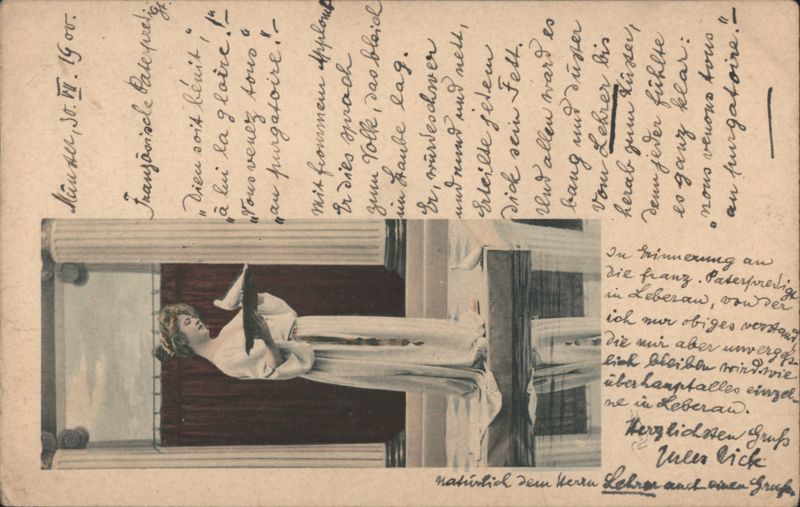 Münster, 30. VII. 1900.
Französische Paterpredigt.
„Dieu soit bénit,"
„à lui la gloire!–
„Vous venez tous"
„au purgatoire!–
Mit frommem Applomb
Er dies sprach
zum Volk, das bleich
im Staube lag.
Er, würdeschwer
und rund und nett,
Erteilte jedem
Dick sein Fett.
Und allen ward es
bang und düster
Vom Lehrer bis
herab zum Küster,
denn jeder fühlte
es ganz klar:
"nous venons tous"
"au purgatoire."–
In Erinnerung an
die franz. Paterpredigt
in Leberau, von der
ich nur obiges verstand,
die mir aber unvergess-
lich bleiben wird wie
überhaupt alles einzel-
ne in Leberau.
Herzlichsten Gruß
Jules
natürlich dem Herrn Lehrer auch einen Gruß.